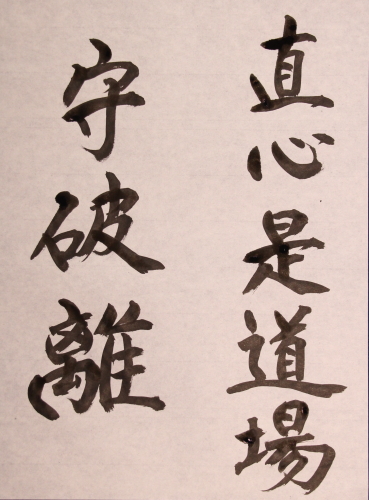 直心是道場
守破離